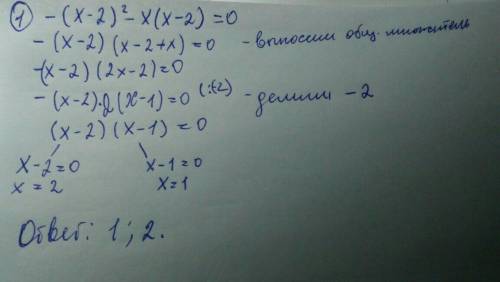 ① -(x-2)² - x(x-2) = 0
-(x-2)(x-2+x) = 0 - выносим общ. множитель
-(x-2)(2x-2) = 0
-(x-2)·2(x-1) = 0 (:(-2) - делим -2
(x-2)(x-1) = 0
x-2=0 x-1=0
x=2 x=1
Ответ: 1; 2.